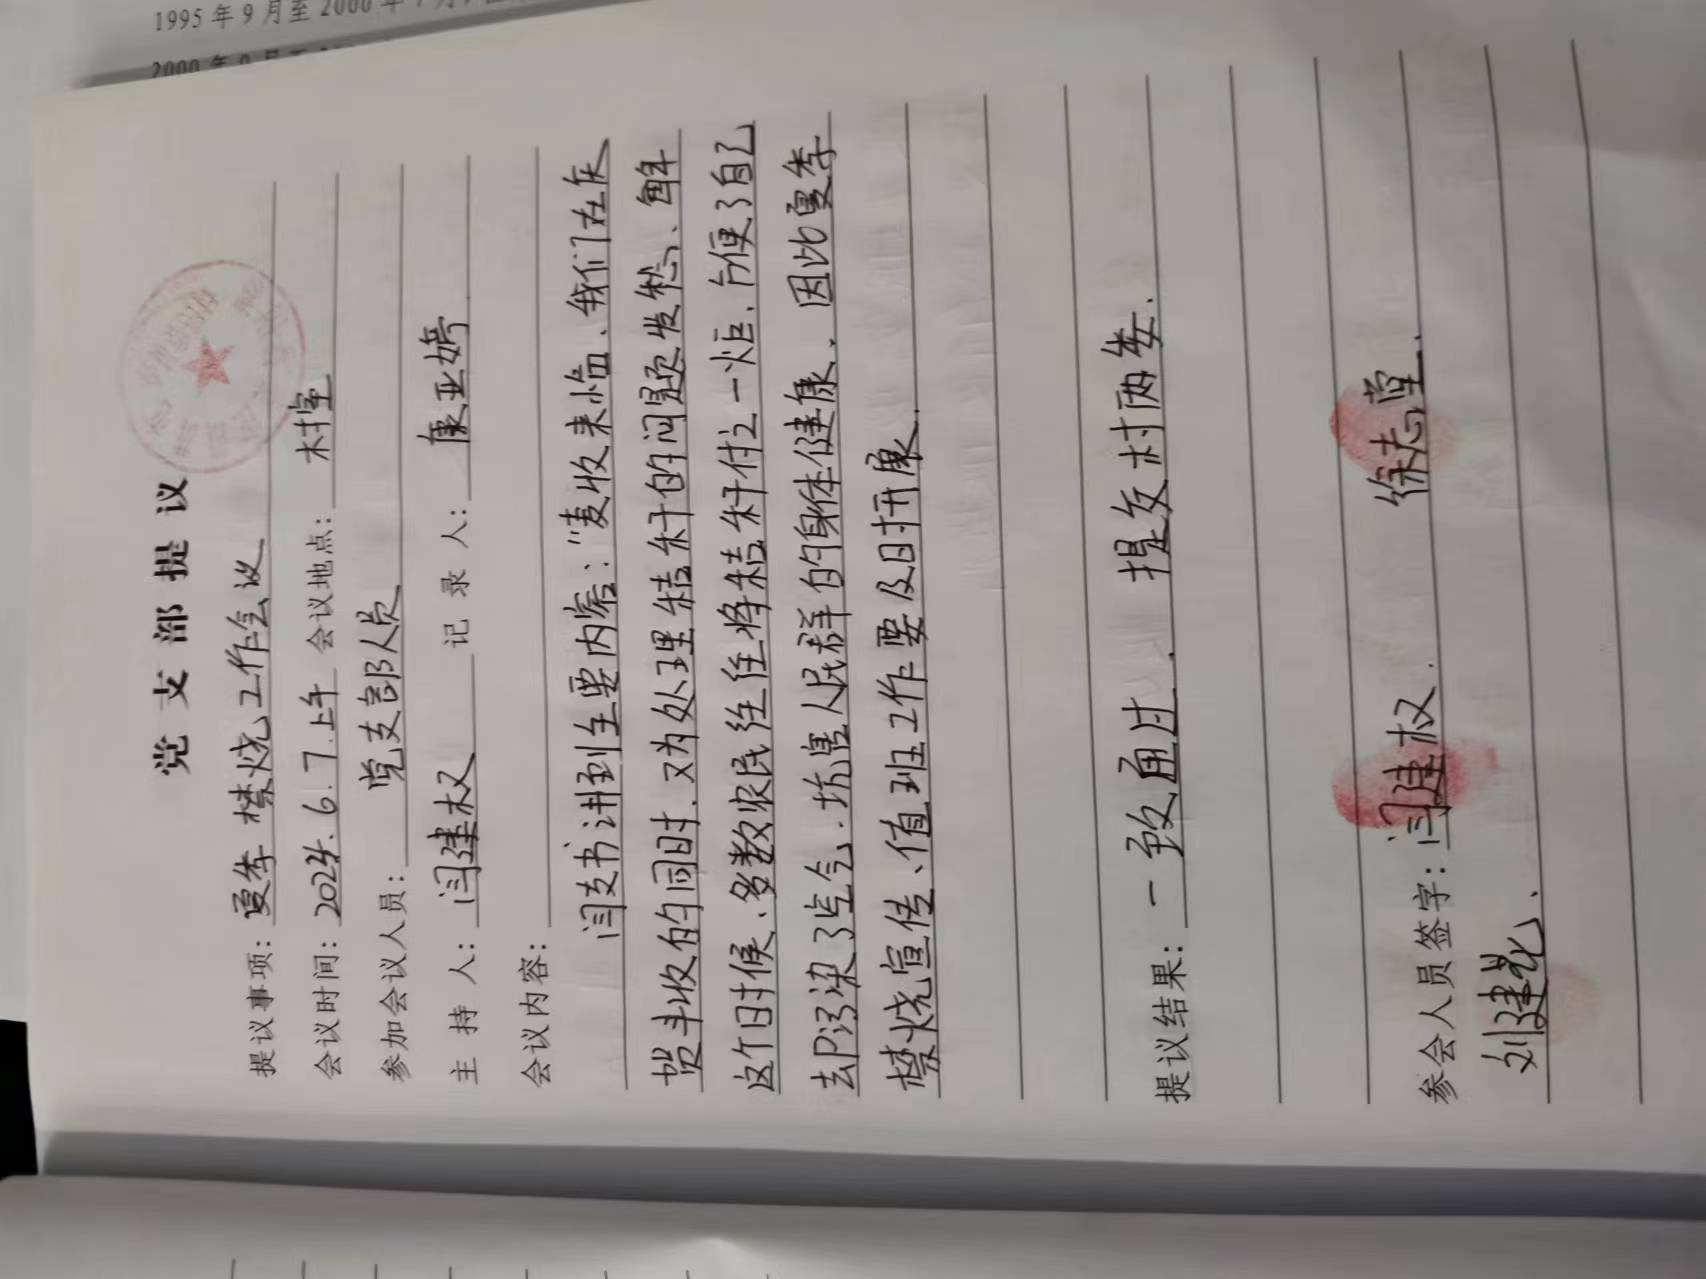 1995年9月至2000年
2000年9月
党支部提议
提议事项：夏季禁烧工作会议
会议时间：2024.6.7.上午 会议地点：村室
参加会议人员：党支部人员
主持人：闫建权 记录人：康亚婷
会议内容：
闫支书讲到主要内容："麦收来临、我们在庆
贺丰收的同时.又为处理秸秆的问题发愁、每年
这个时候、多数农民往往将秸秆付之一炬、方便了自己
去P污染了空气.坑害人民群的身体健康、因此夏季
禁烧宣传、值班工作要及时开展.
提议结果：一致通过.提交村两委.
参会人员签字：闫建权. 徐志堂.
刘建花.